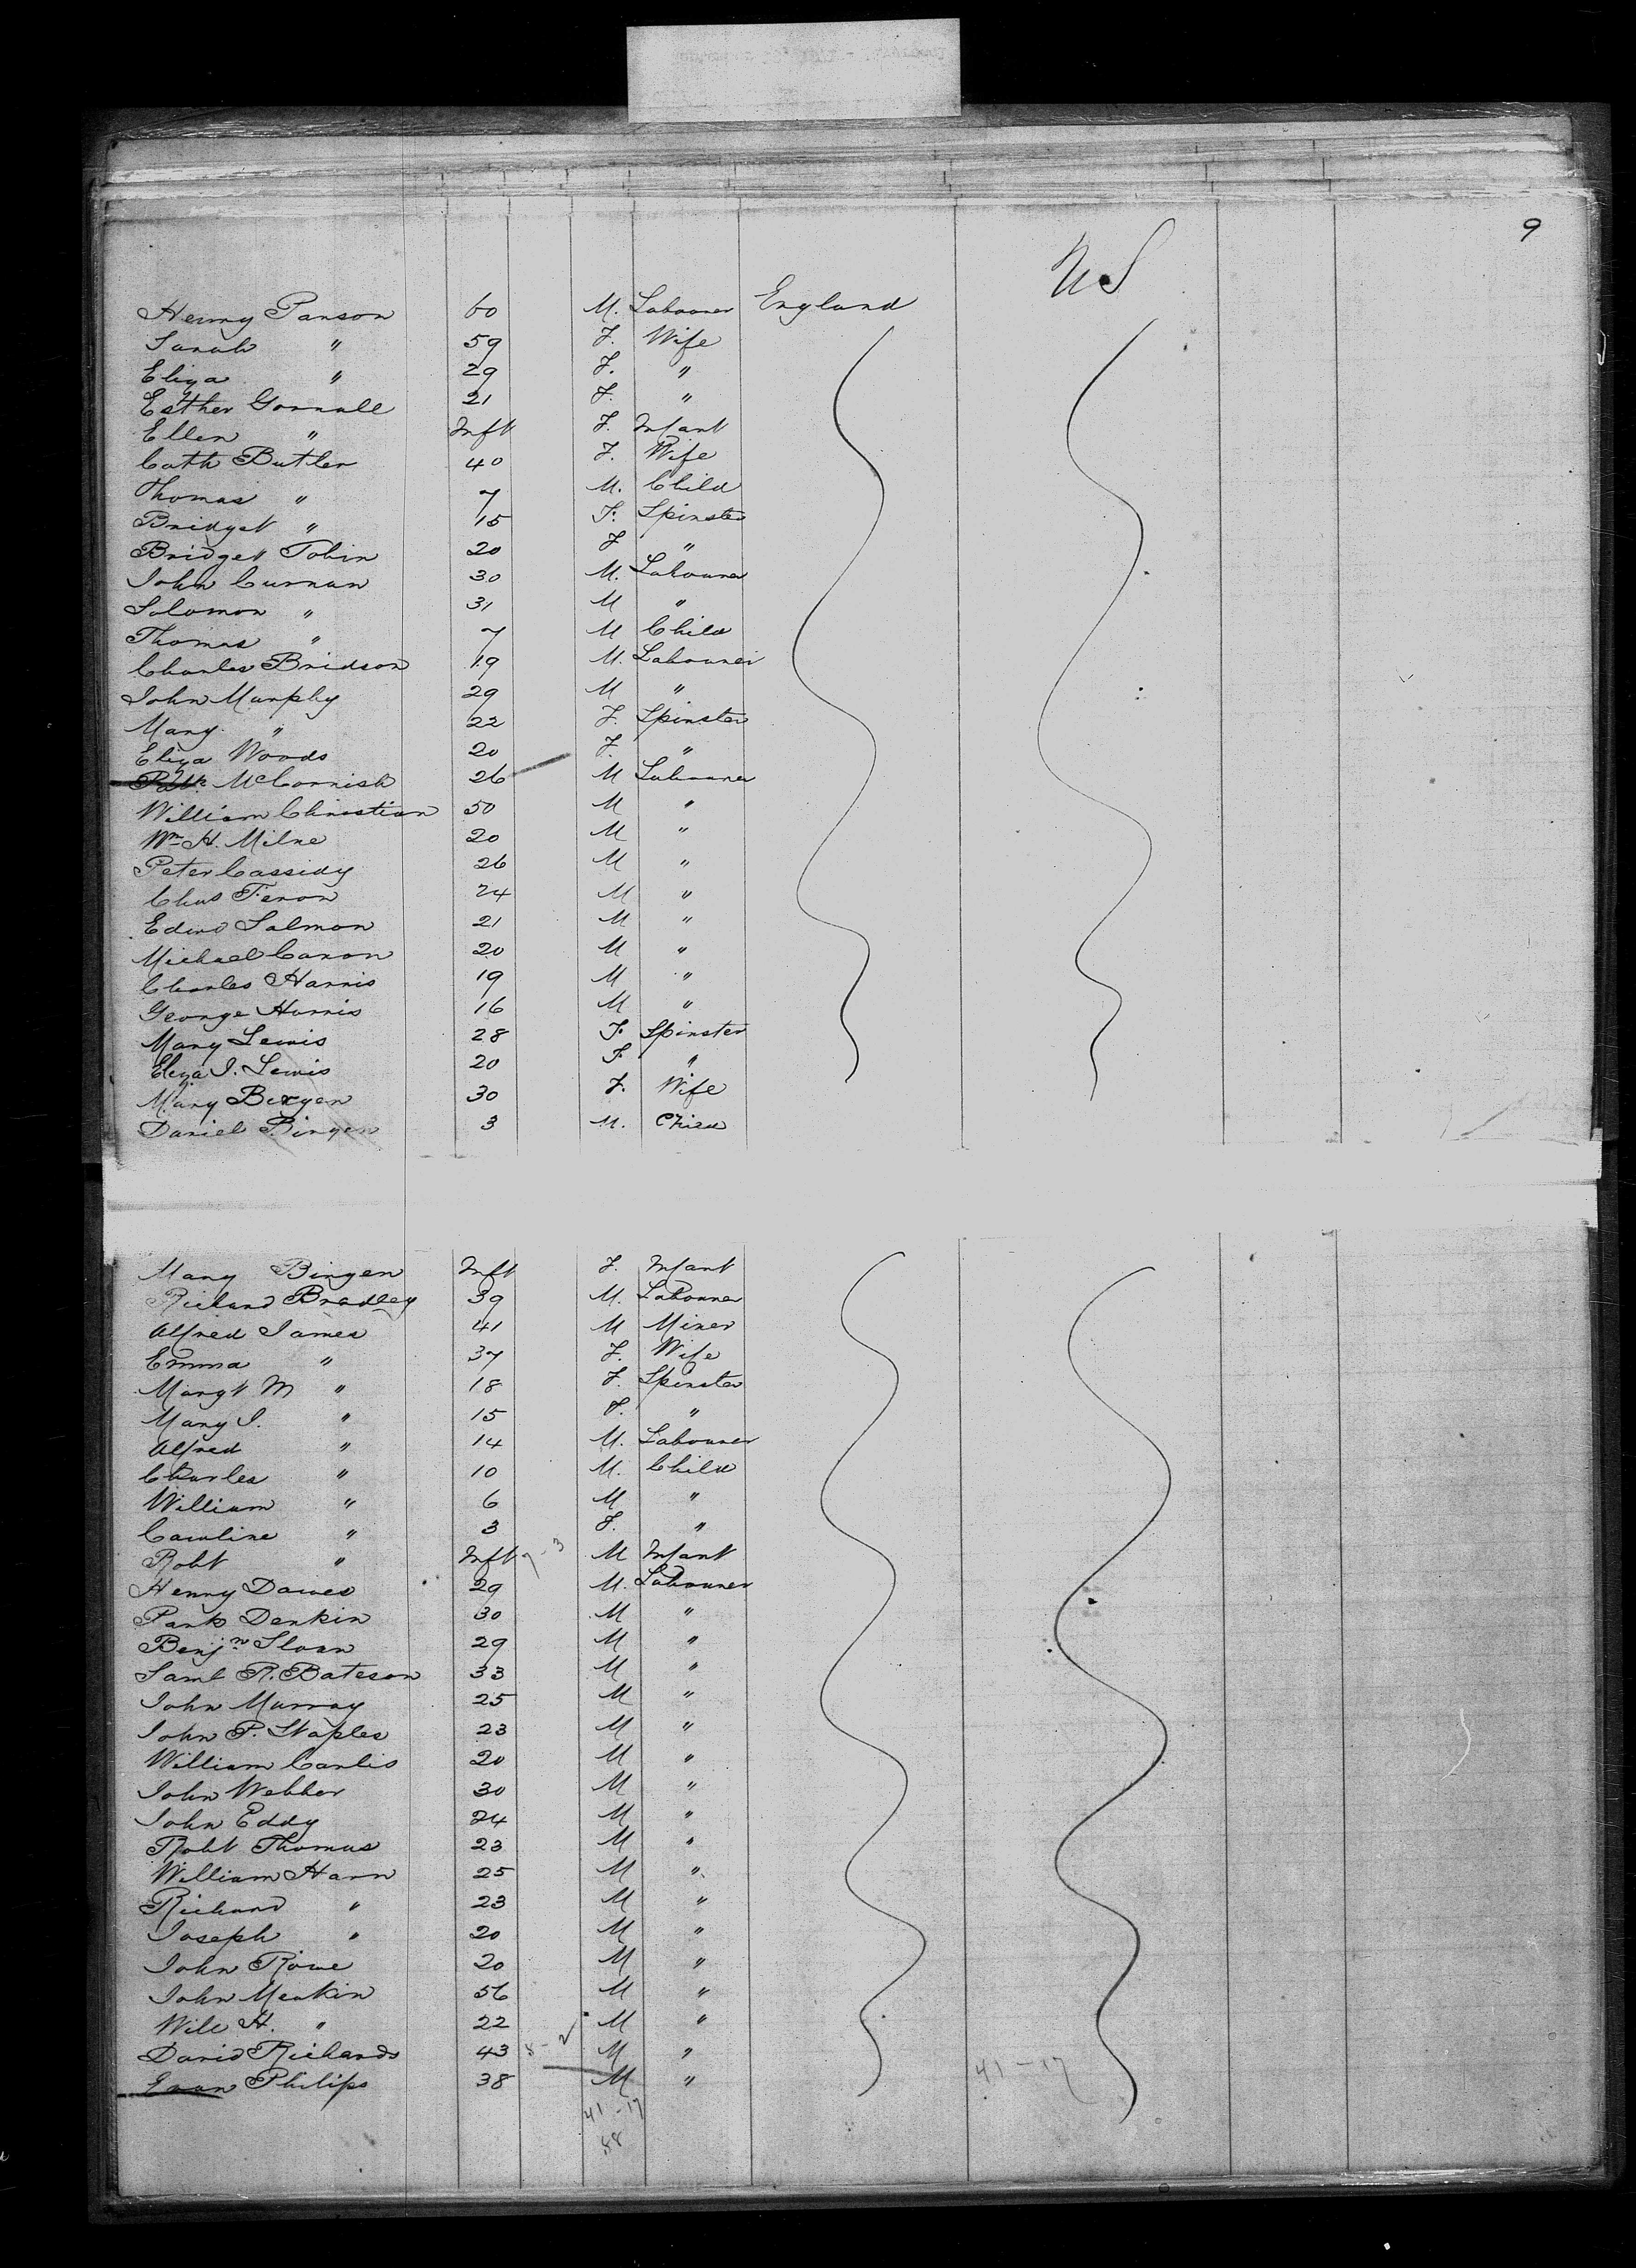 9
U.S
Henry Parson 60 M. Labourer England
Sarah " 59 F. Wife
Eliza " 29 F. "
Esther Gornall 21 F. "
Ellen " Inft F. Infant
Cath Butler 40 F. Wife
Thomas " 7 M. Child
Bridget " 15 F. Spinster
Bridget Tobin 20 F "
John Curnan 30 M. Labourer
Solomon " 31 M "
Thomas " 7 M Child
Charles Bridson 19 M. Labourer
John Murphy 29 M "
Mary " 22 F. Spinster
Eliza Woods 20 F. "
Patk McCornish 26 M Labourer
William Christian 50 M "
Wm H. Milne 20 M "
Peter Cassidy 26 M "
Chas Feron 24 M "
Edwd Salmon 21 M "
Michael Caron 20 M "
Charles Harris 19 M "
George Harris 16 M "
Mary Lewis 28 F. Spinster
Eliza J. Lewis 20 F "
Mary Bergen 30 F. Wife
Daniel Bingen 3 M. Child
Mary Bingen Inft F. Infant
Richard Bradley 39 M. Labourer
Alfred James 41 M Miner
Emma " 37 F. Wife
Margt M " 18 F. Spinster
Mary J. " 15 F. "
Alfred " 14 M. Labourer
Charles " 10 M. Child
William " 6 M "
Caroline " 3 F. "
Robt " Inft 7-3 M Infant
Henry Dawes 29 M. Labourer
Park Denkin 30 M "
Benjn Sloan 29 M "
Saml R. Bateson 33 M "
John Murray 25 M "
John P. Staples 23 M "
William Carlis 20 M "
John Webber 30 M "
John Eddy 24 M "
Robt Thomas 23 M "
William Harn 25 M "
Richard " 23 M "
Joseph " 20 M "
John Rowe 20 M "
John Meakin 56 M "
Will H. " 22 M "
David Richards 43 8-2 M "
Evan Philips 38 M " 41-17
41-17
58